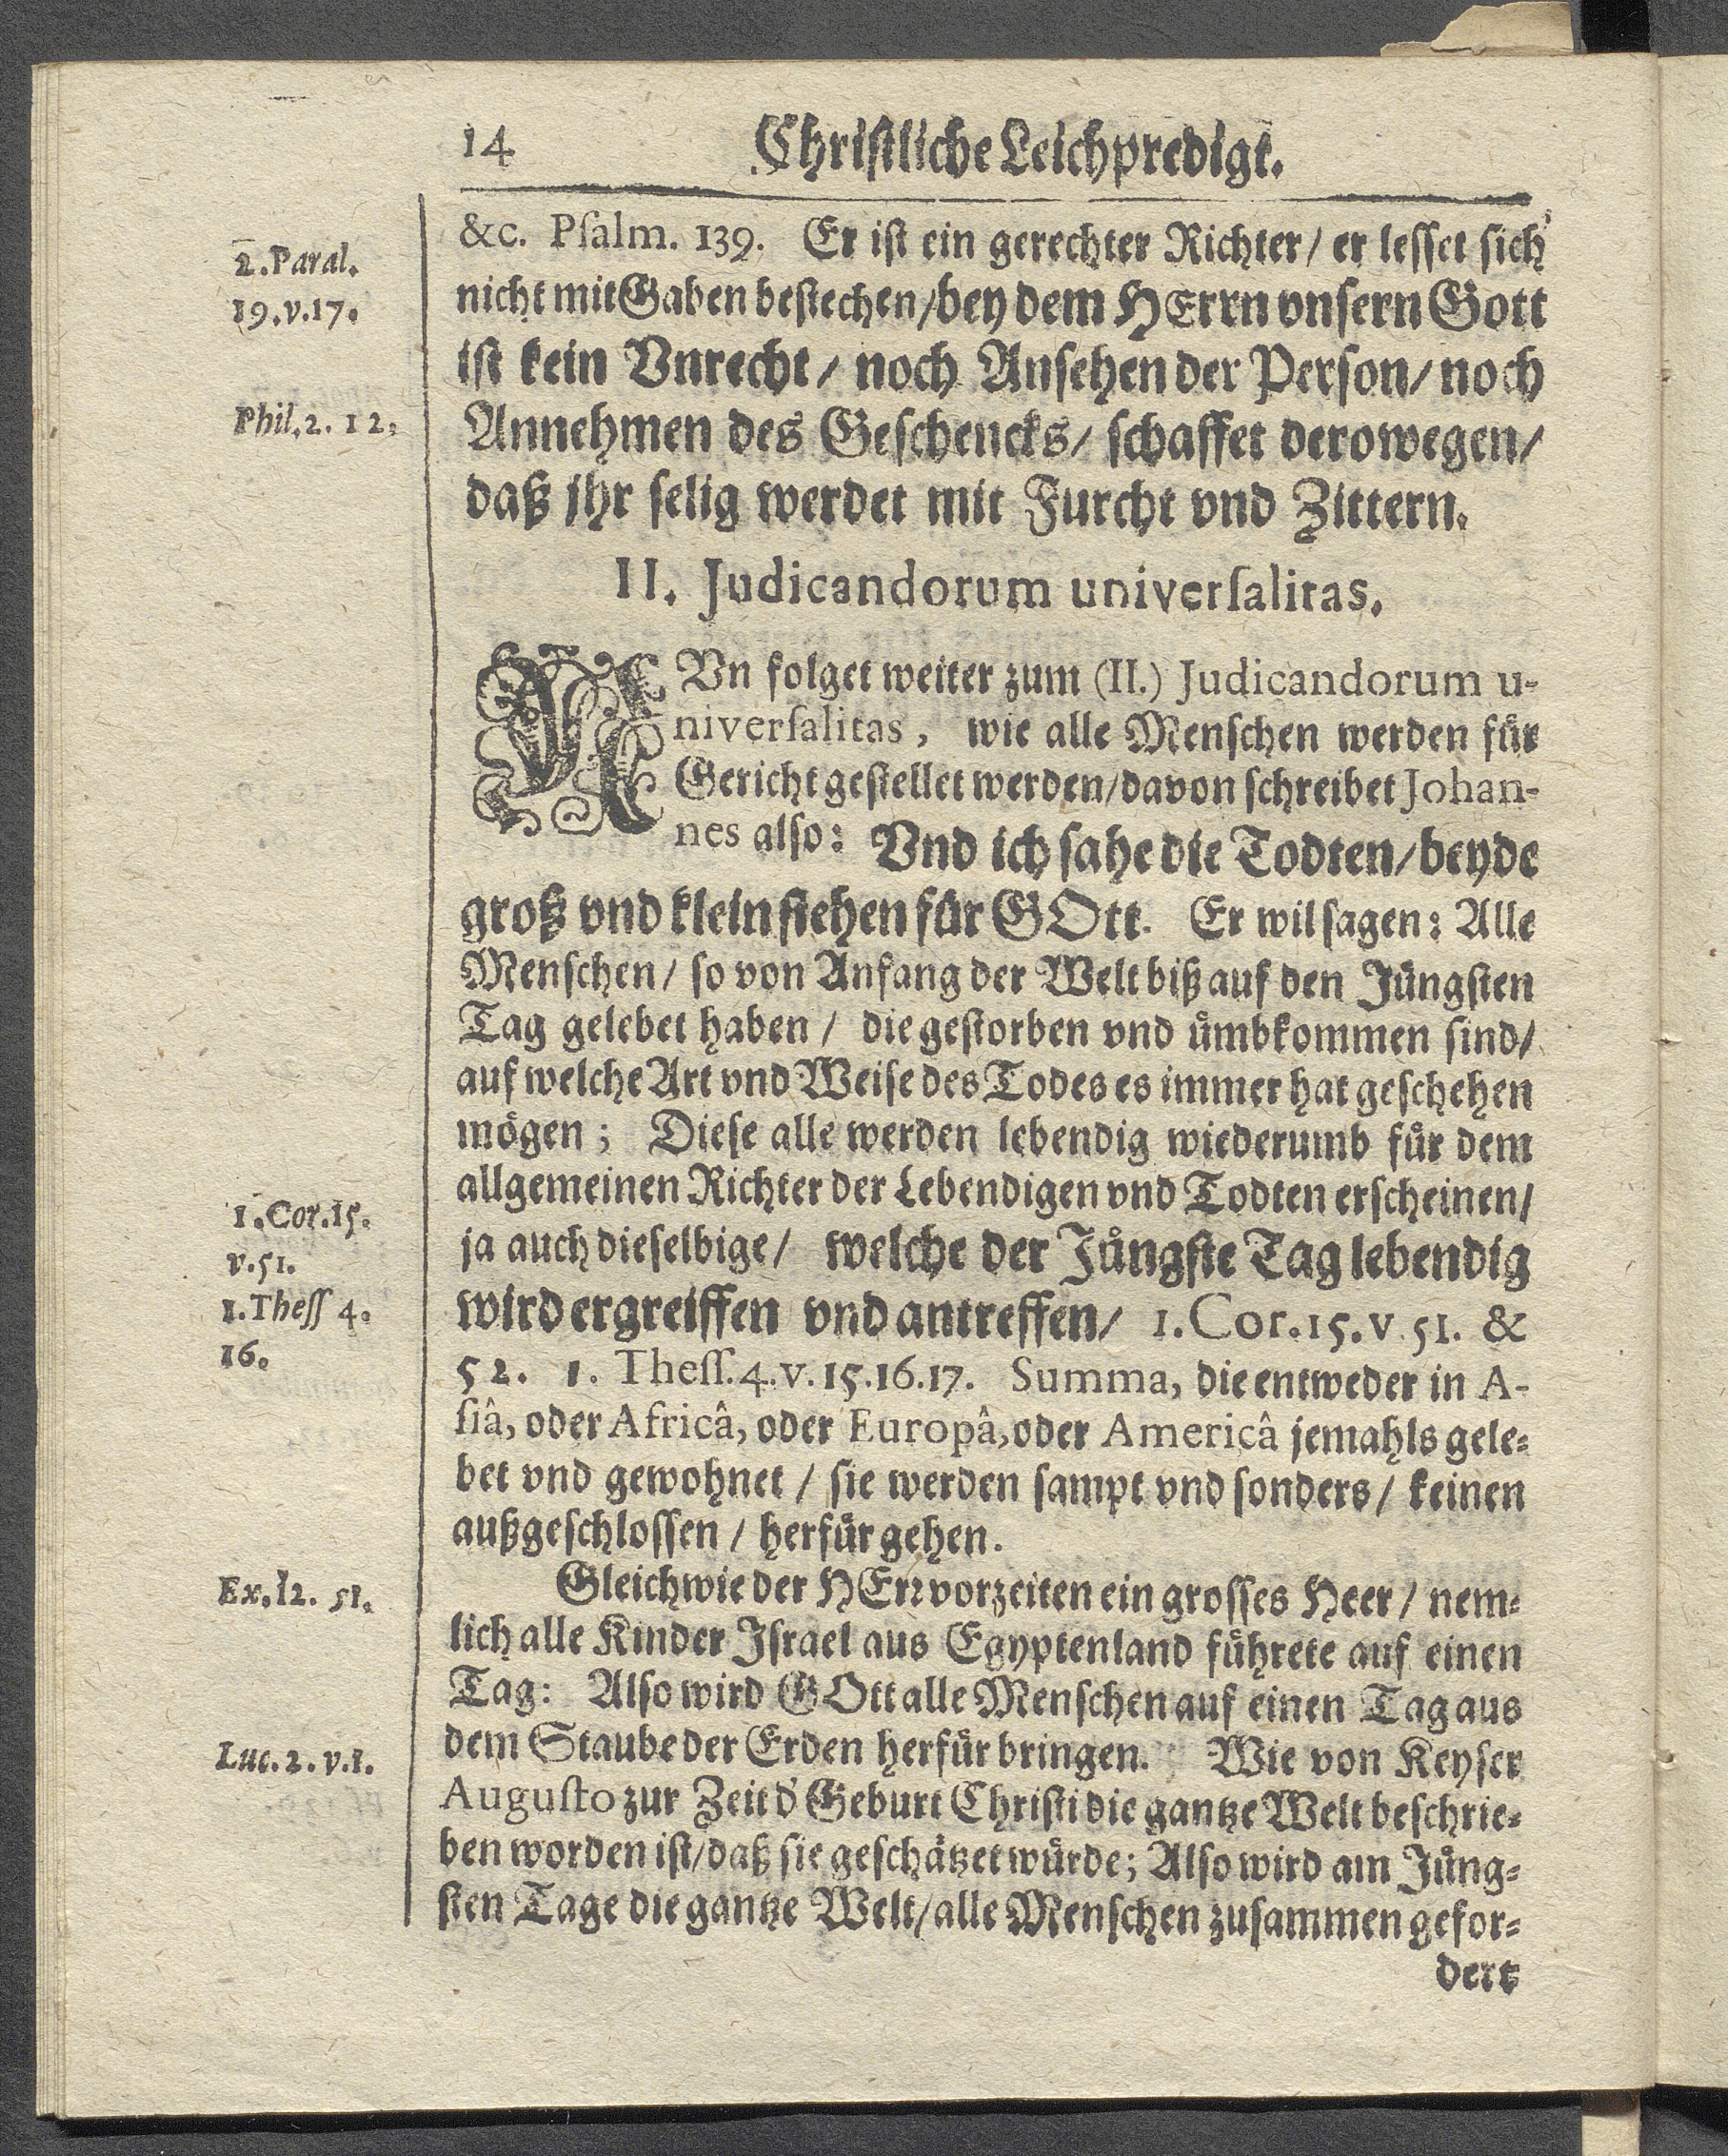 14 Chriſtliche Leichpredigt.
2. Paral.
19. v. 17.
Phil. 2. 12.
&c. Pſalm. 139. Er iſt ein gerechter Richter/ er leſſet ſich
nicht mit Gaben beſtechen/ bey dem HErrn vnſern Gott
iſt kein Vnrecht/ noch Anſehen der Perſon/ noch
Annehmen des Geſchencks/ ſchaffet derowegen/
daß jhr ſelig werdet mit Furcht vnd Zittern.
II. Judicandorum univerſalitas.
NVn folget weiter zum (II.) Judicandorum u-
niverſalitas, wie alle Menſchen werden fuͤr
Gericht geſtellet werden/ davon ſchreibet Johan-
nes alſo: Vnd ich ſahe die Todten/ beyde
groß vnd klein ſtehen fuͤr GOtt. Er wil ſagen: Alle
Menſchen/ ſo von Anfang der Welt biß auf den Juͤngſten
Tag gelebet haben/ die geſtorben vnd uͤmbkommen ſind/
auf welche Art vnd Weiſe des Todes es immer hat geſchehen
moͤgen; Dieſe alle werden lebendig wiederumb fuͤr dem
allgemeinen Richter der Lebendigen vnd Todten erſcheinen/
ja auch dieſelbige/ welche der Juͤngſte Tag lebendig
wird ergreiffen vnd antreffen/ 1. Cor. 15. v. 51. &
52. 1. Theſſ. 4. v. 15. 16. 17. Summa, die entweder in A-
ſiâ, oder Africâ, oder Europâ, oder Americâ jemahls gele-
bet vnd gewohnet/ ſie werden ſampt vnd ſonders/ keinen
außgeſchloſſen/ herfuͤr gehen.
1. Cor. 15.
v. 51.
1. Theſſ 4.
16.
Ex. 12. 51.
Luc. 2. v. 1.
Gleich wie der HErr vorzeiten ein groſſes Heer/ nem-
lich alle Kinder Iſrael aus Egyptenland fuͤhrete auf einen
Tag: Alſo wird GOtt alle Menſchen auf einen Tag aus
dem Staube der Erden herfuͤr bringen. Wie von Keyſer
Auguſto zur Zeit d' Geburt Chriſti die gantze Welt beſchrie-
ben worden iſt/ daß ſie geſchaͤtzet wuͤrde; Alſo wird am Juͤng-
ſten Tage die gantze Welt/ alle Menſchen zuſammen gefor-
dert